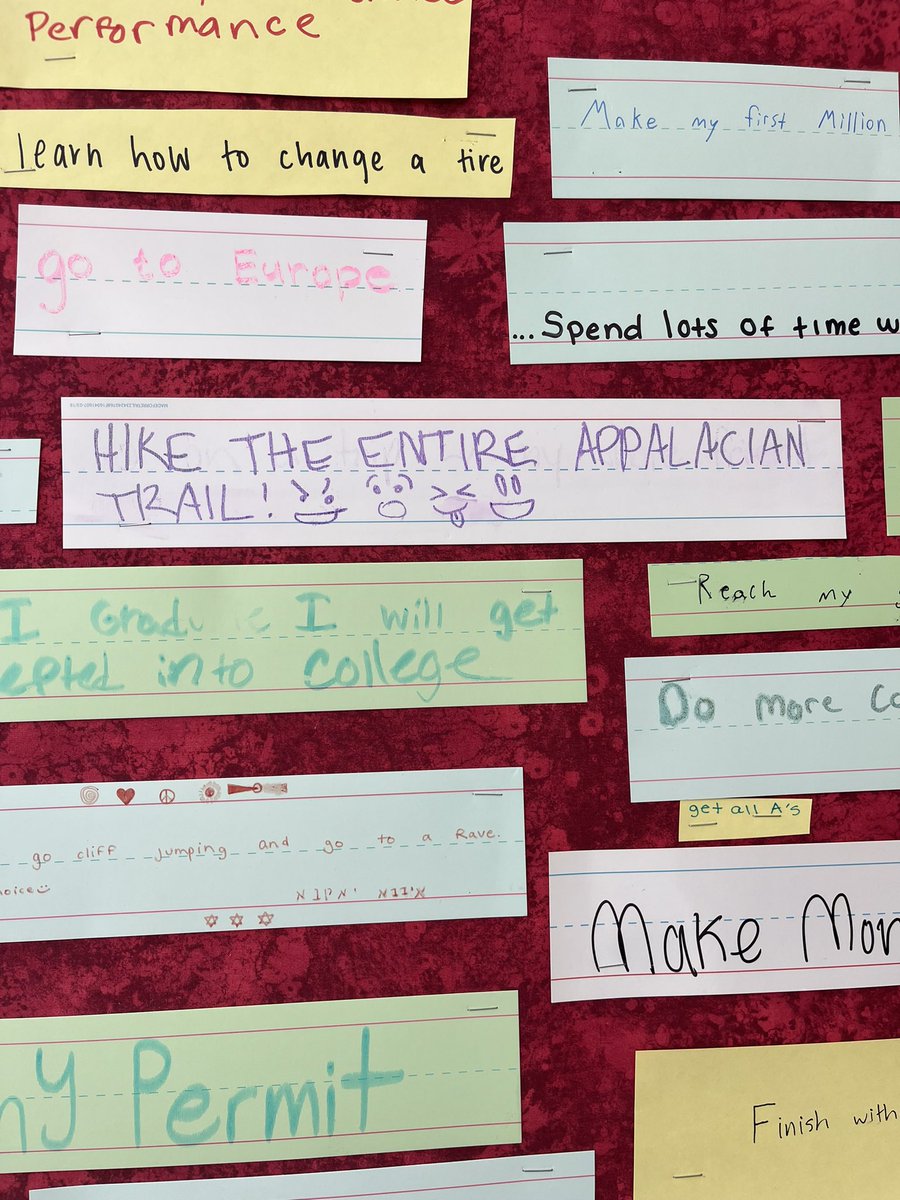 Performance
learn how to change a tire
Make my first Million
go to Europe
...Spend lots of time w
HIKE THE ENTIRE APPALACIAN
TRAIL!
I Graduate I will get
epted into college
Reach my
Do more Co
get all A's
go cliff jumping and go to a Rave.
hoice
Make Mon
my Permit
Finish with